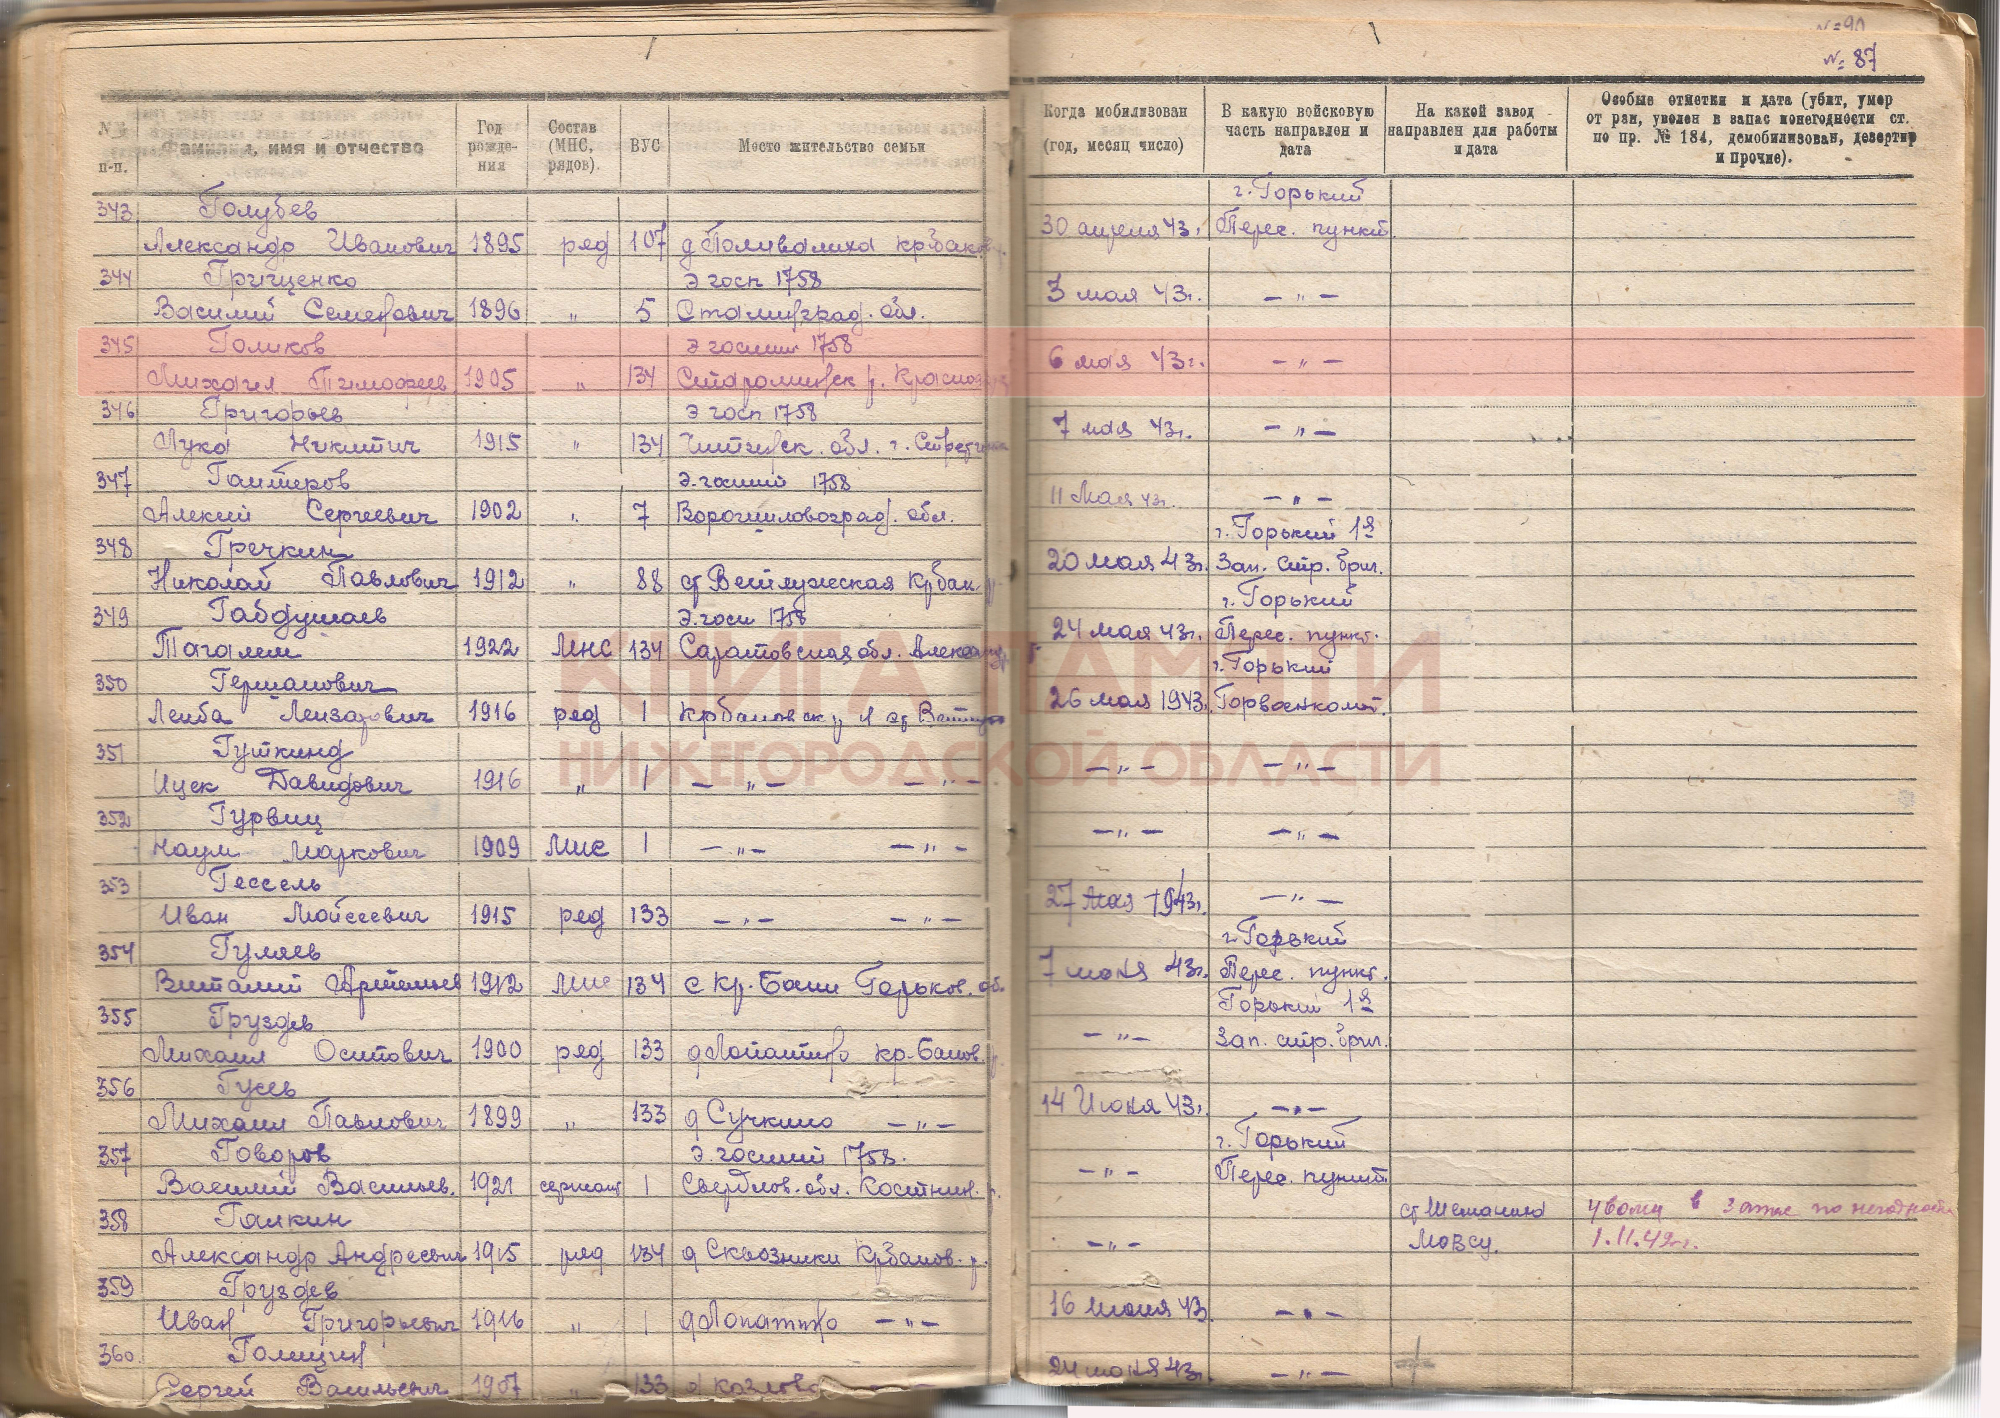 № 90
№ 87
№№ п-п.
Фамилия, имя и отчество
Год рождения
Состав (МНС, рядов).
ВУС
Место жительство семьи
Когда мобилизован (год, месяц число)
В какую войсковую часть направлен и дата
На какой завод направлен для работы и дата
Особые отметки и дата (убит, умер от ран, уволен в запас по негодности ст. по пр. № 184, демобилизован, дезертир и прочие).
343 Голубев г. Горький
Александр Иванович 1895 ряд 107 д Поливалиха 30 апреля 43г. Перес. пункт.
344 Грищенко Э госп 1758
Василий Семенович 1896 " 5 Сталинград. обл. 3 мая 43г. — " —
345 Голиков Э госпит 1758
Михаил Тимофеев. 1905 " 134 6 мая 43г. — " —
346 Григорьев Э госп 1758
Лука Никитич 1915 " 134 Читинск. обл. г. 7 мая 43г. — " —
347 Э. госпит 1758
Алексей Сергеевич 1902 " 7 Ворошиловоград. обл. 11 Мая 43г. — " —
348 Гречкин г. Горький 1я
Николай Павлович 1912 " 88 ст Ветлужская Крбак. 20 мая 43г. Зап. стр. бриг.
349 Габдушаев Э. госп 1758 г. Горький
1922 МНС 134 Саратовская обл. 24 мая 43г. Перес. пункт.
350 Германович г. Горький
Лейба Лейзорович 1916 ряд 1 26 мая 1943г. Горвоенкомат.
351 Гуткинд
Ицек Давидович 1916 " 1 — " — — " — — " — — " —
352 Гурвиц
Наум Маркович 1909 МНС 1 — " — — " — — " — — " —
353 Гессель
Иван Мойсеевич 1915 ряд 133 — " — — " — 27 мая 1943г. — " —
354 Гуляев г. Горький
Виталий 1912 МНС 134 с Кр. Баки Горьков. об. 7 июня 43г. Перес. пункт.
355 Груздев Горький 1я
Михаил Осипович 1900 ряд 133 д Лопатино Кр-Баков. — " — Зап. стр. бриг.
356 Гусев
Михаил Павлович 1899 " 133 д Сучкино — " — 14 Июня 43г. — " —
357 Говоров Э. госпит 1758. г. Горький
Василий Васильев. 1921 сержант 1 Свердлов. обл. — " — Перес. пункт.
358 Галкин ст Шеманиха уволен в запас по негодности
Александр Андреевич 1915 ряд 134 д Сквозники Крбаков. р. — " — 1.11.42г.
359 Груздев
Иван Григорьевич 1916 " 1 д Лопатино — " — 16 июня 43г. — " —
360. Голицин
Сергей Васильевич 1907 " 133 д козлово 24 июня 43г. — " —
КНИГА ПАМЯТИ
НИЖЕГОРОДСКОЙ ОБЛАСТИ